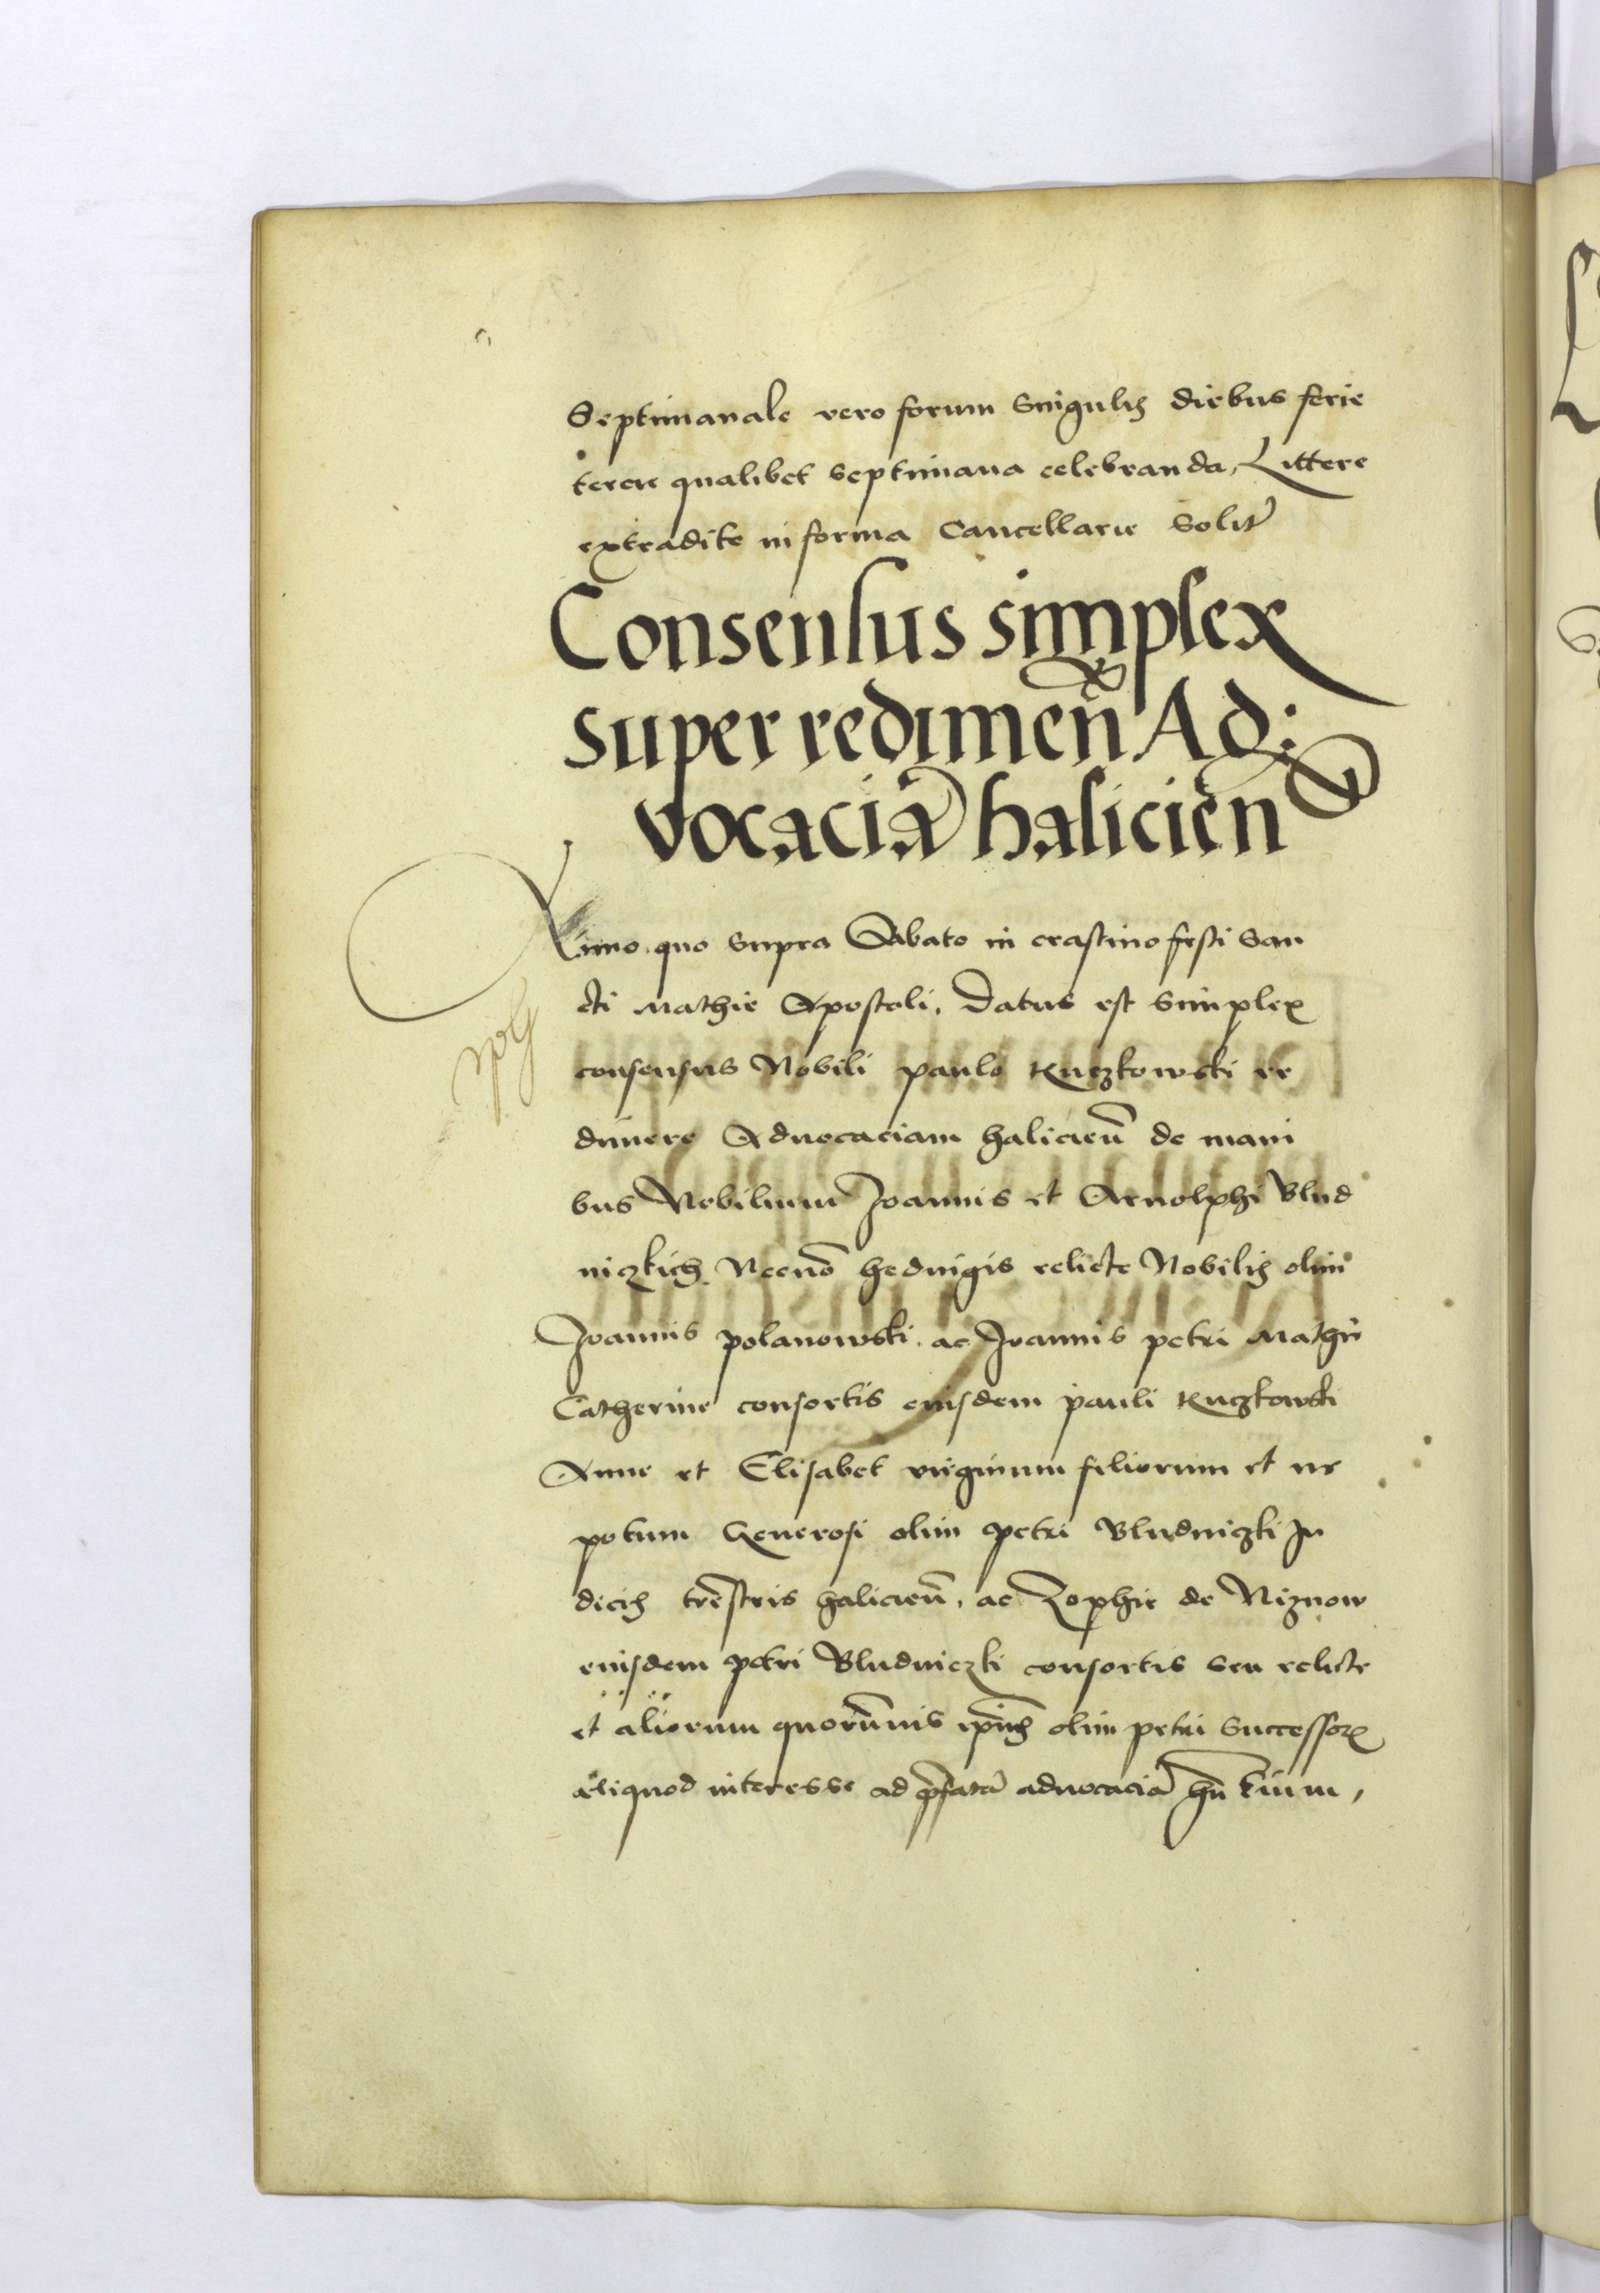 Septimanale vero forum singulis diebus ferie
tercie qualibet septimana celebranda, Littere
extradite in forma Cancellarie solit̃
Consensus simplex
super redimeñ Ad:
vocaciã halicieñ
Anno quo supra Sabato in crastino festi San
cti Mathie Apostoli, Datus est simplex
consensus Nobili paulo Kuczkowski re
dimere Aduocaciam halicieñ de mani
bus Nobilium Joannis et Arnolphi Blud
niczkich Necnõ hedwigis relicte Nobilis olim
Joannis polanowski, ac Joannis petri Mathie
Catherine consortis eiusdem pauli Kuczkowski
Anne et Elisabet virginum filiorum et ne
potum Generosi olim petri Bludniczki Ju
dicis trẽstris halicieñ, ac Zophie de Niznow
eiusdem petri Bludniczki consortis seu relicte
et aliorum quorũuis ip̃ius olim petri Successorx
aliquod interesse ad p̃fatã aduocaciã hñtium,